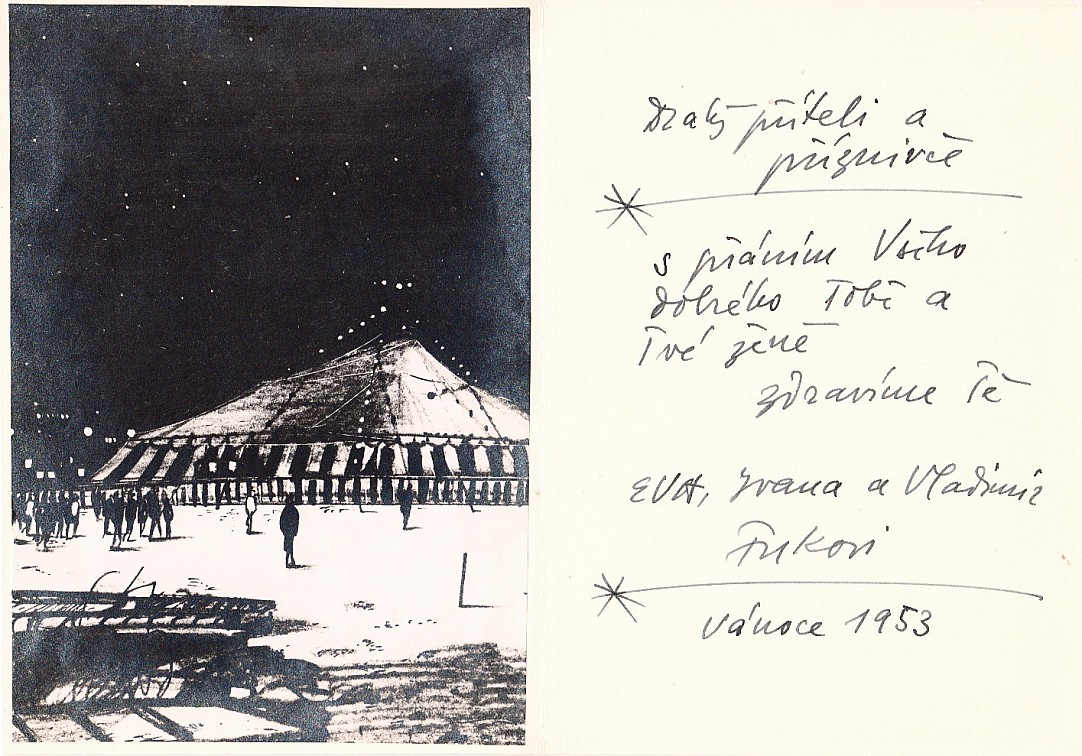 Drahý příteli a
příznivče
s přáním Všeho
dobrého Tobě a
Tvé ženě
zdravíme Tě
EVA, Ivana a Vladimír
Fukovi
Vánoce 1953